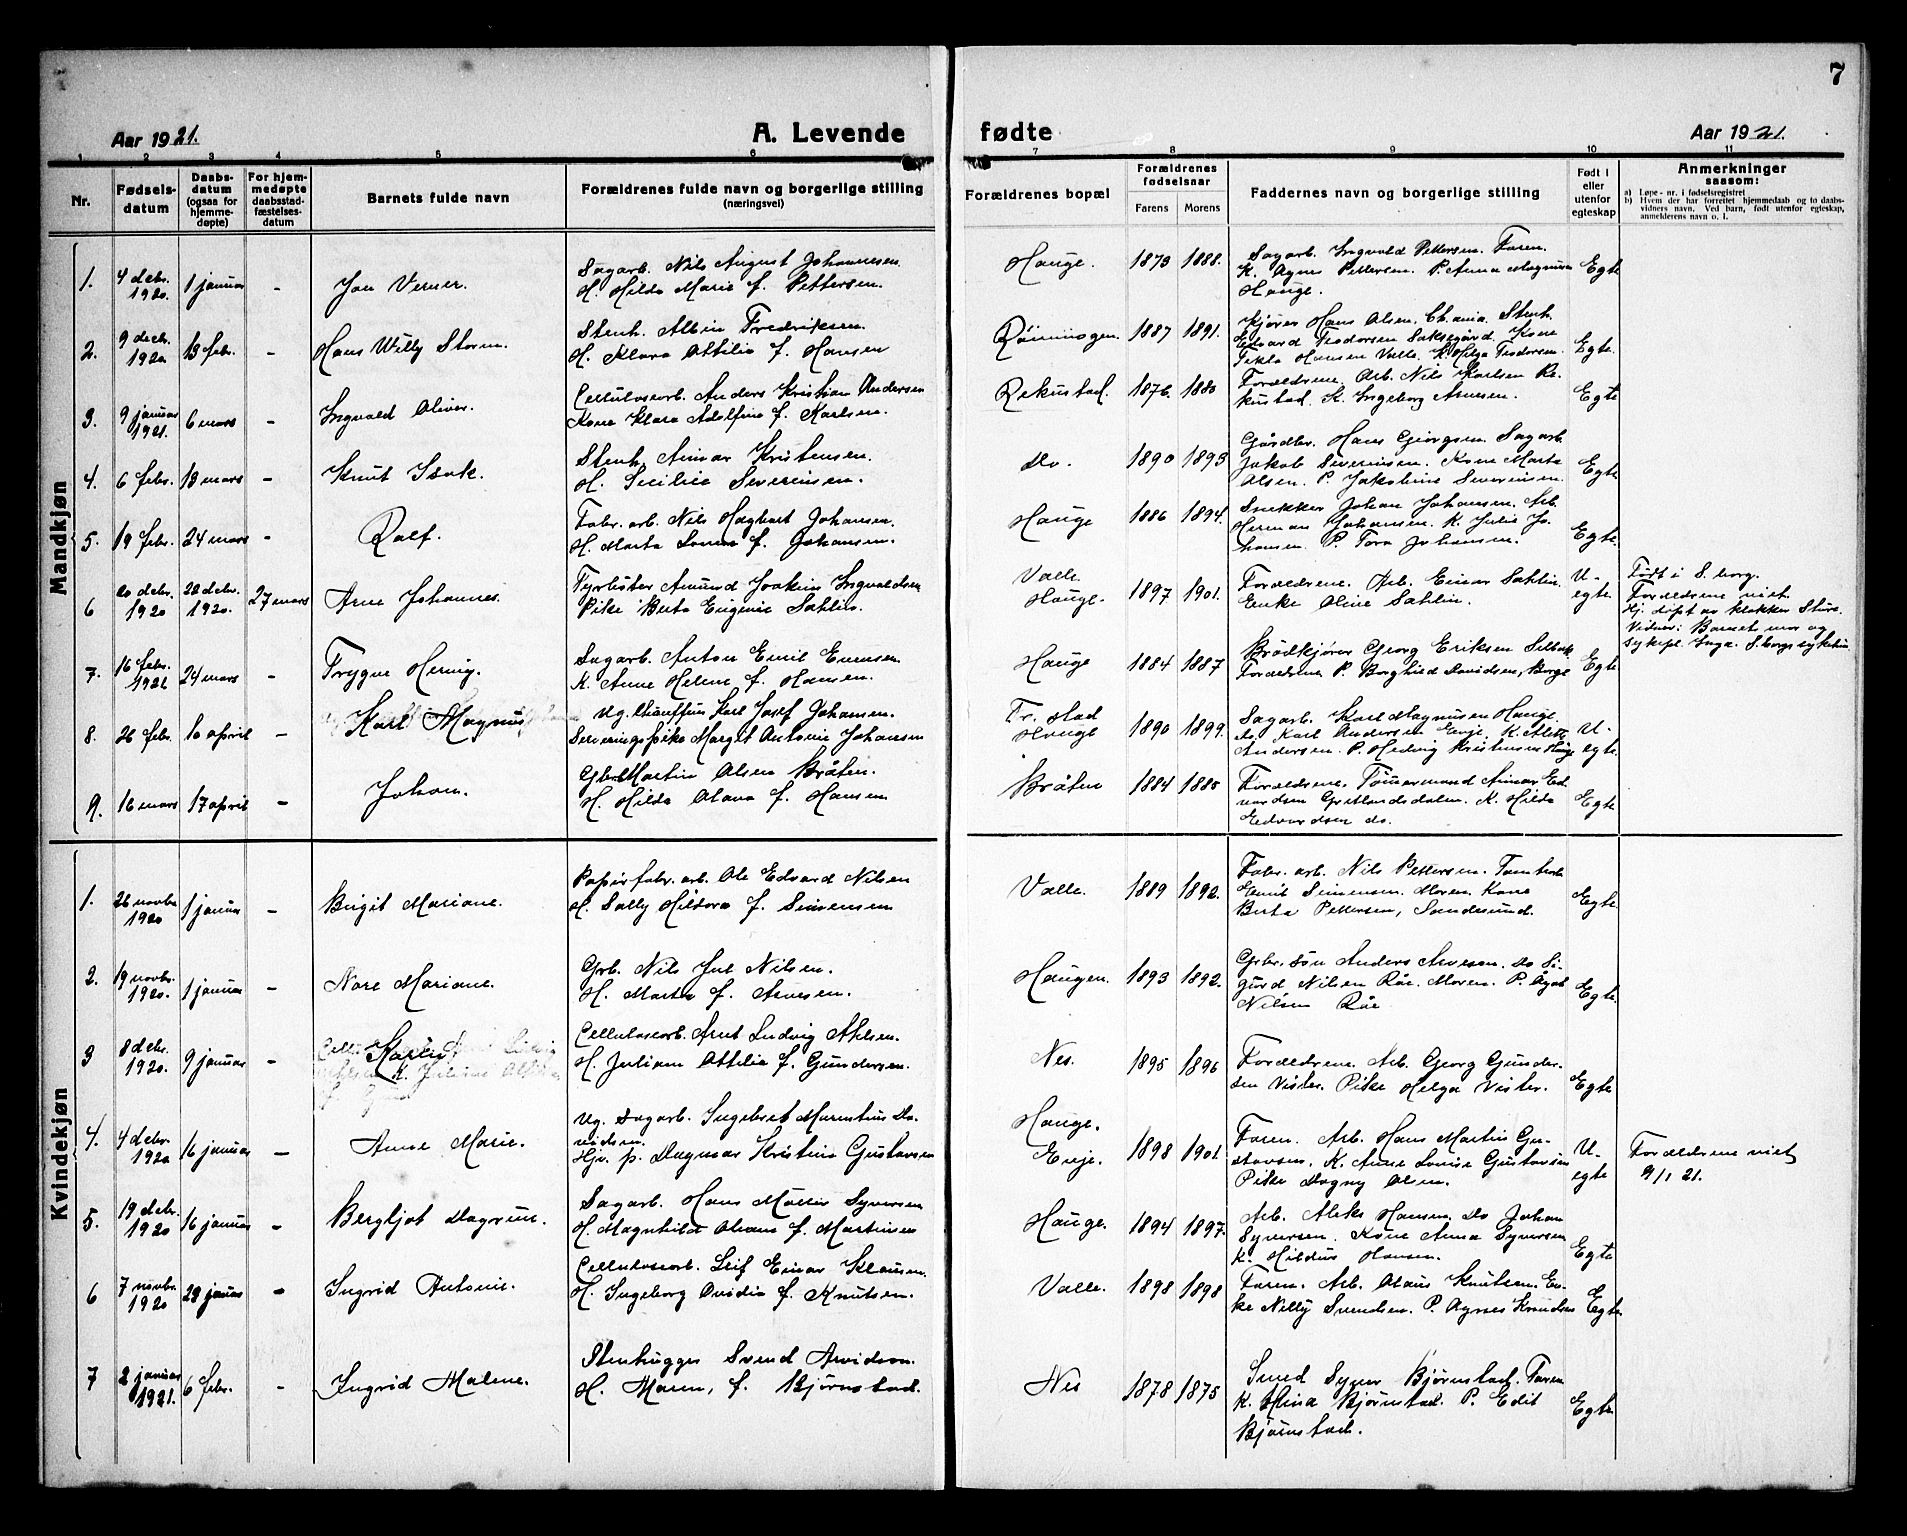 7
Aar 1921.
A. Levende
fødte
Aar 1921.
1 2 3 4 5 6 7 8 9 10 11
Nr.
Fødselsdatum
Daabsdatum (ogsaa for hjemmedøpte)
For hjemmedøpte daabsstadfæstelsesdatum
Barnets fulde navn
Forældrenes fulde navn og borgerlige stilling
(næringsvei)
Forældrenes bopæl
Forældrenes fødselsaar
Farens
Morens
Faddernes navn og borgerlige stilling
Født i eller utenfor egteskap
Anmerkninger
saasom:
a) Løpe-nr. i fødselsregistret
b) Hvem der har forrettet hjemmedaab og to daabsvidners navn. Ved barn, født utenfor egteskap, anmelderens navn o. l.
Mandkjøn
1. 4 debr. 1920. 1 januar - Jon Verner.
Sagarb. Nils August Johannesen
H. Hilda Marie f. Pettersen.
Hauge. 1873 1888.
Sagarb. Ingvald Pettersen. Faren.
K. Agnes Pettersen. P. Anna Magnusen
Hauge.
Egte
2. 9 decbr. 1920 13 febr. - Hans Willy Storm.
Stenh. Albin Fredriksen.
H. Klara Attilia f. Hansen
1887 1891.
Kjører Hans Olsen. Ch.ania. Stenh.
Edvard Teodorsen Saksegård. Kone
Tekla Hansen Valle. K. Helga Teodorsen.
Egte.
3. 9 januar 1921. 6 mars - Ingvald Oliver.
Cellulosearb. Anders Kristian Andersen
Kone Klara Adolfine f. Karlsen.
Rekustad. 1876. 1880
Forældrene. Arb. Nils Karlsen Rekustad.
K. Ingeborg Arnesen.
Egte
4. 6 febr. 13 mars - Knut Isak.
Stenh. Annar Kristensen.
H. Sicilie Severinsen.
Do. 1890 1893
Gårdbr. Hans Georgsen. Sagarb.
Jakob Severinsen. Kone Marta
Olsen. P. Jakobine Severinsen.
Egte
5. 19 febr. 24 mars - Rolf.
Fabr. arb. Nils Hagbart Johansen.
H. Marta Lovise f. Johansen.
Hauge 1886 1894.
Snekker Johan Johansen. Arb.
Herman Johansen. K. Julie Johansen.
P. Tora Johansen.
Egte.
6 20 debr. 1920 22 debr. 1920. 27 mars Arne Johannes.
Fyrbøter Amund Joakim Ingvaldsen
Pike Berta Eugenie Sahlin.
Valle.
Hauge. 1897 1901.
Forældrene. Arb. Einar Sahlin.
Enke Oline Sahlin.
U-
egte
Født i S.borg.
Forældrene viet
Hj. døpt av klokker
Vidner: Barnets mor og
sykepl. Inga S.borgs sykehus
7. 16 febr. 1921 24 mars - Trygve Hernig.
Sagarb. Anton Emil Evensen
K. Anne Helene f. Hansen.
Hauge 1884 1887
Brødkjører Georg Eriksen
Forældrene P. Borghild Davidsen, Borge
Egte
8. 26 febr. 10 april - Karl Magnus
Ug. Chauffeur Karl Josef Johansen.
Serveringspike Margit Antonie Johansen
Fr. stad
Hauge 1890 1899.
Sagarb. Karl Magnusen Hauge.
do. Karl Andersen Evje. K.
Andersen. P. Hedvig Kristensen Hauge
U-
egte.
9. 16 mars 17 april - Johan.
Gbr. Martin Olsen Bråten.
H. Hilda Olava f. Hansen
Bråten 1884 1885
Forældrene. Tømmermand Annar Edvardsen
K. Hilda
Edvardsen do.
Egte
Kvindekjøn
1. 26 novbr. 1920 1 januar - Birgit Mariane.
Papirfabr. arb. Ole Edvard Nilsen
H. Sally Hildora f. Simensen
Valle. 1889 1892.
Fabr. arb. Nils Pettersen.
Emil Simensen. Moren. Kone
Berta Pettersen, Sandesund.
Egte
2. 19 novbr. 1920. 1 januar - Nore Mariane.
Gbr. Nils Jul Nilsen.
H. Marta f. Arnesen.
Haugen. 1893 1892.
Gbr. søn Anders Arnesen. Do Sigurd
Nilsen Råe. Moren. P. Ågot
Nilsen Råe
Egte
3 8 debr. 1920. 9 januar - Karly
Cellulosearb. Arnt Ludvig Nilsen.
H. Juliane Attilia f. Gundersen.
Nes. 1895 1896
Forældrene. Arb. Georg Gundersen
Vister. Pike Helga Vister.
Egte
4. 4 debr. 1920 16 januar - Anne Marie.
Ug. Sagarb. Ingebret Marentius Davidsen.
Hjv. p. Dagmar Kristine Gustavsen
Hauge.
Evje. 1898 1901
Faren. Arb. Hans Martin Gustavsen.
K. Anne Lovise Gustavsen
Pike Dagny Olsen.
U-
egte
Forældrene viet
9/1 21.
5. 19 debr. 1920 16 januar - Bergljot Dagrun.
Sagarb. Hans Møller Syversen
H. Magnhild Olava f. Martinsen
Hauge. 1894 1897.
Arb. Aleks Hansen. Do Johan
Syversen. Kone Anna Syversen
K. Hildus Hansen.
Egte
6 7 novbr. 1920 23 januar - Ingrid Antonie.
Cellulosearb. Leif Einar Klausen.
H. Ingeborg Ovidia f. Knutsen.
Valle. 1898 1898
Faren. Arb. Olaus Knutsen. Enke
Nelly Svendsen. P. Agnes Knudsen
Egte.
7 2 januar 1921. 6 febr. - Ingrid Malene.
Stenhugger Svend Arvidson.
H. Maren, f. Bjørnstad.
Nes 1878 1875
Smed Syver Bjørnstad. Faren
K. Mina Bjørnstad. P. Edit
Bjørnstad.
Egte